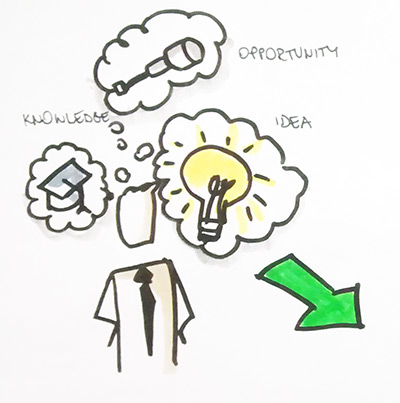 OPPORTUNITY
KNOWLEDGE
IDEA